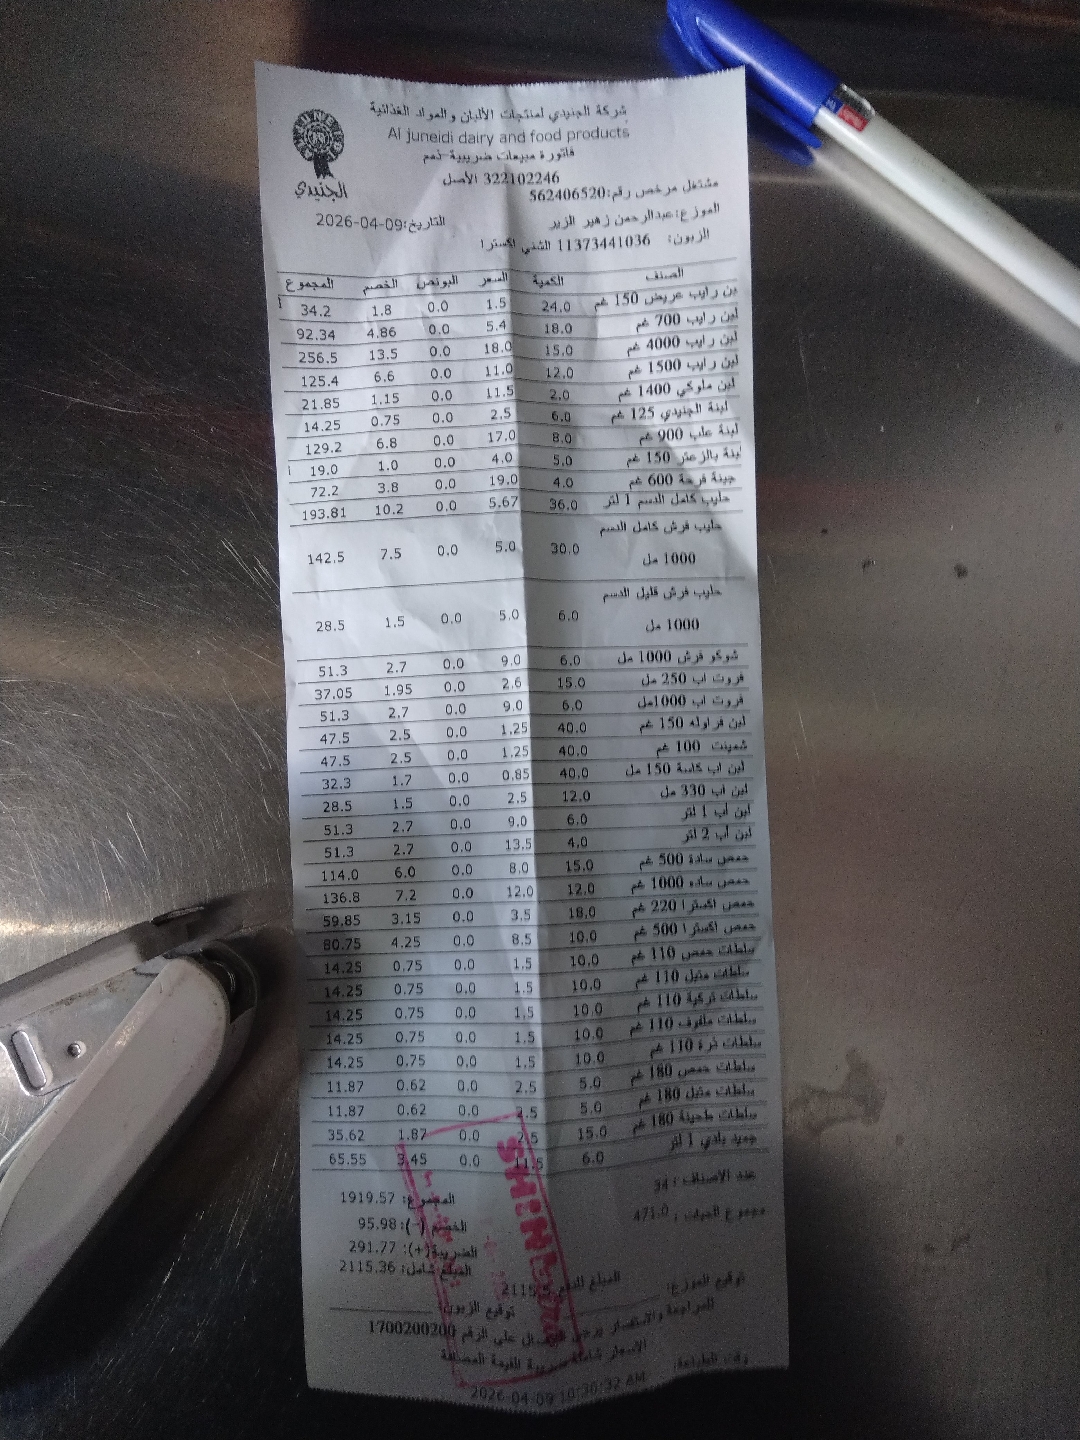 شركة الجنيدي لمنتجات الألبان والمواد الغذائية
Al juneidi dairy and food products
فاتورة مبيعات ضريبية-ذمم
322102246 الأصل
مشتغل مرخص رقم:562406520
الجنيدي
الموزع:عبدالرحمن زهير الزير
التاريخ:2026-04-09
الزبون: 11373441036 الشني اكسترا
الصنف الكمية السعر البونص الخصم المجموع
لبن رايب عريض 150 غم 24.0 1.5 0.0 1.8 34.2
لبن رايب 700 غم 18.0 5.4 0.0 4.86 92.34
لبن رايب 4000 غم 15.0 18.0 0.0 13.5 256.5
لبن رايب 1500 غم 12.0 11.0 0.0 6.6 125.4
لبن ملوكي 1400 غم 2.0 11.5 0.0 1.15 21.85
لبنة الجنيدي 125 غم 6.0 2.5 0.0 0.75 14.25
لبنة علب 900 غم 8.0 17.0 0.0 6.8 129.2
لبنة بالزعتر 150 غم 5.0 4.0 0.0 1.0 19.0
جبنة فرحة 600 غم 4.0 19.0 0.0 3.8 72.2
حليب كامل الدسم 1 لتر 36.0 5.67 0.0 10.2 193.81
حليب فرش كامل الدسم
1000 مل 30.0 5.0 0.0 7.5 142.5
حليب فرش قليل الدسم
1000 مل 6.0 5.0 0.0 1.5 28.5
شوكو فرش 1000 مل 6.0 9.0 0.0 2.7 51.3
فروت اب 250 مل 15.0 2.6 0.0 1.95 37.05
فروت اب 1000مل 6.0 9.0 0.0 2.7 51.3
لبن فراوله 150 غم 40.0 1.25 0.0 2.5 47.5
شمينت 100 غم 40.0 1.25 0.0 2.5 47.5
لبن اب كاسة 150 مل 40.0 0.85 0.0 1.7 32.3
لبن اب 330 مل 12.0 2.5 0.0 1.5 28.5
لبن أب 1 لتر 6.0 9.0 0.0 2.7 51.3
لبن أب 2 لتر 4.0 13.5 0.0 2.7 51.3
حمص سادة 500 غم 15.0 8.0 0.0 6.0 114.0
حمص ساده 1000 غم 12.0 12.0 0.0 7.2 136.8
حمص اكسترا 220 غم 18.0 3.5 0.0 3.15 59.85
حمص اكسترا 500 غم 10.0 8.5 0.0 4.25 80.75
سلطات حمص 110 غم 10.0 1.5 0.0 0.75 14.25
سلطات متبل 110 غم 10.0 1.5 0.0 0.75 14.25
سلطات تركية 110 غم 10.0 1.5 0.0 0.75 14.25
سلطات ملفوف 110 غم 10.0 1.5 0.0 0.75 14.25
سلطات ذرة 110 غم 10.0 1.5 0.0 0.75 14.25
سلطات حمص 180 غم 5.0 2.5 0.0 0.62 11.87
سلطات متبل 180 غم 5.0 2.5 0.0 0.62 11.87
سلطات طحينة 180 غم 15.0 2.5 0.0 1.87 35.62
جميد بلدي 1 لتر 6.0 11.5 0.0 3.45 65.55
عدد الأصناف : 34
المجموع: 1919.57
مجموع الحبات : 471.0
الخصم (-): 95.98
الضريبة(+): 291.77
المبلغ شامل: 2115.36
المبلغ للدفع 2115.5
توقيع الموزع:
توقيع الزبون:
للمراجعة والاستفسار يرجى الاتصال على الرقم 1700200200
الاسعار شاملة ضريبة القيمة المضافة
وقت الطباعة:
2026-04-09 10:30:32 AM